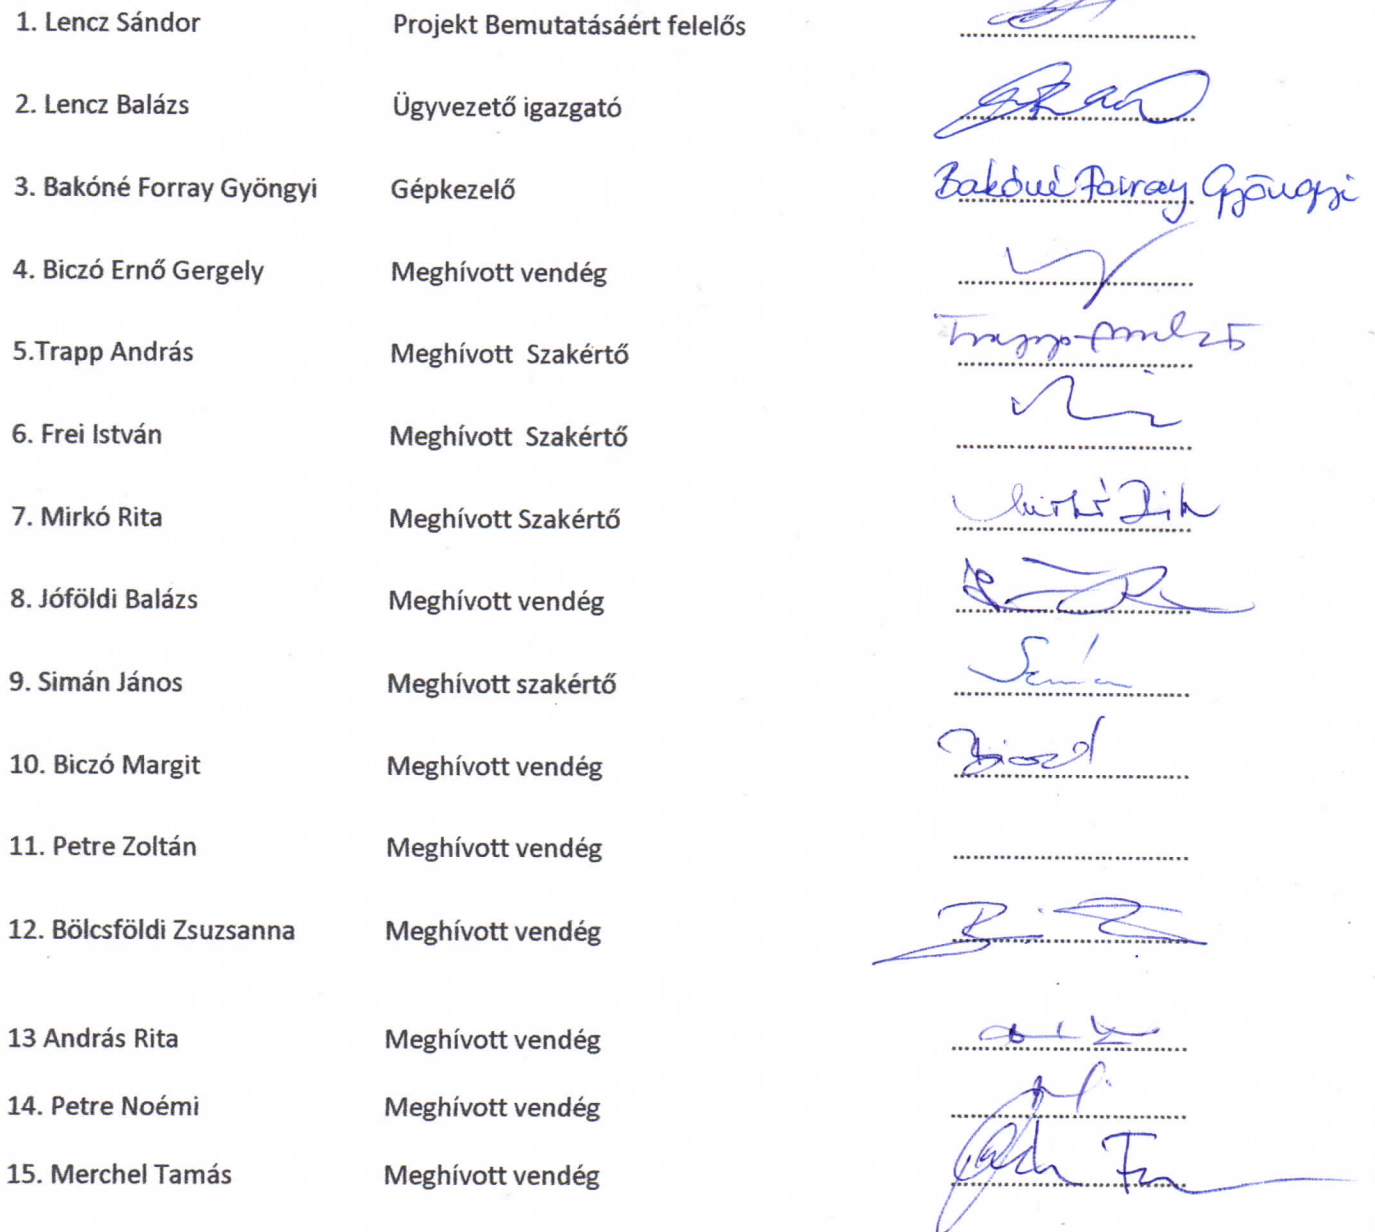 1. Lencz Sándor Projekt Bemutatásáért felelős
2. Lencz Balázs Ügyvezető igazgató
3. Bakóné Forray Gyöngyi Gépkezelő Bakóné Forray Gyöngyi
4. Biczó Ernő Gergely Meghívott vendég
5.Trapp András Meghívott Szakértő Trapp András
6. Frei István Meghívott Szakértő
7. Mirkó Rita Meghívott Szakértő Mirkó Rita
8. Jóföldi Balázs Meghívott vendég
9. Simán János Meghívott szakértő Simán
10. Biczó Margit Meghívott vendég Biczó
11. Petre Zoltán Meghívott vendég
12. Bölcsföldi Zsuzsanna Meghívott vendég
13 András Rita Meghívott vendég
14. Petre Noémi Meghívott vendég
15. Merchel Tamás Meghívott vendég